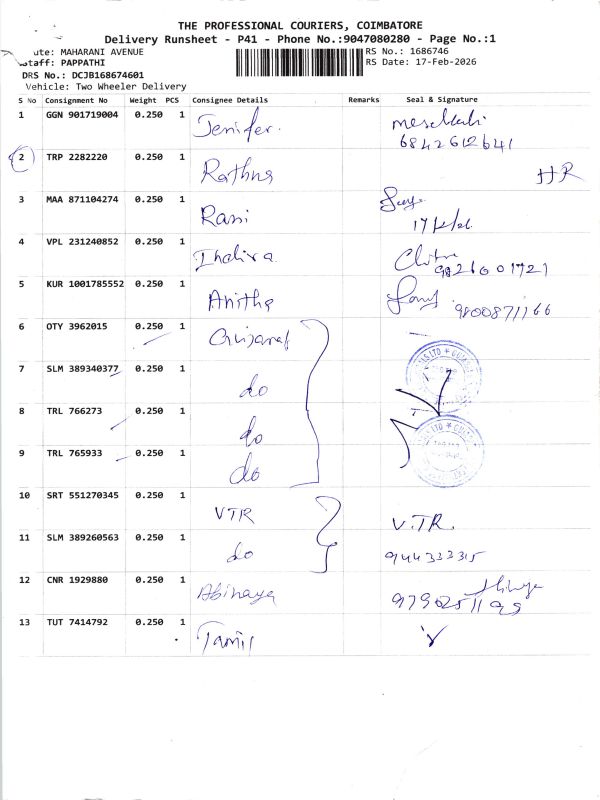 THE PROFESSIONAL COURIERS, COIMBATORE
Delivery Runsheet - P41 - Phone No.:9047080280 - Page No.:1
ute: MAHARANI AVENUE RS No.: 1686746
Staff: PAPPATHI RS Date: 17-Feb-2026
DRS No.: DCJB168674601
Vehicle: Two Wheeler Delivery
S No Consignment No Weight PCS Consignee Details Remarks Seal & Signature
1 GGN 901719004 0.250 1 Jenifer.
2 TRP 2282220 0.250 1 Rathna HR
3 MAA 871104274 0.250 1 Rani
4 VPL 231240852 0.250 1 Indira
5 KUR 1001785552 0.250 1 Anitha 9800871166
6 OTY 3962015 0.250 1
7 SLM 389340377 0.250 1 do
8 TRL 766273 0.250 1 do
9 TRL 765933 0.250 1 do
10 SRT 551270345 0.250 1 VTR V.TR.
11 SLM 389260563 0.250 1 do 944333315
12 CNR 1929880 0.250 1 Abinaya
13 TUT 7414792 0.250 1 Tamil